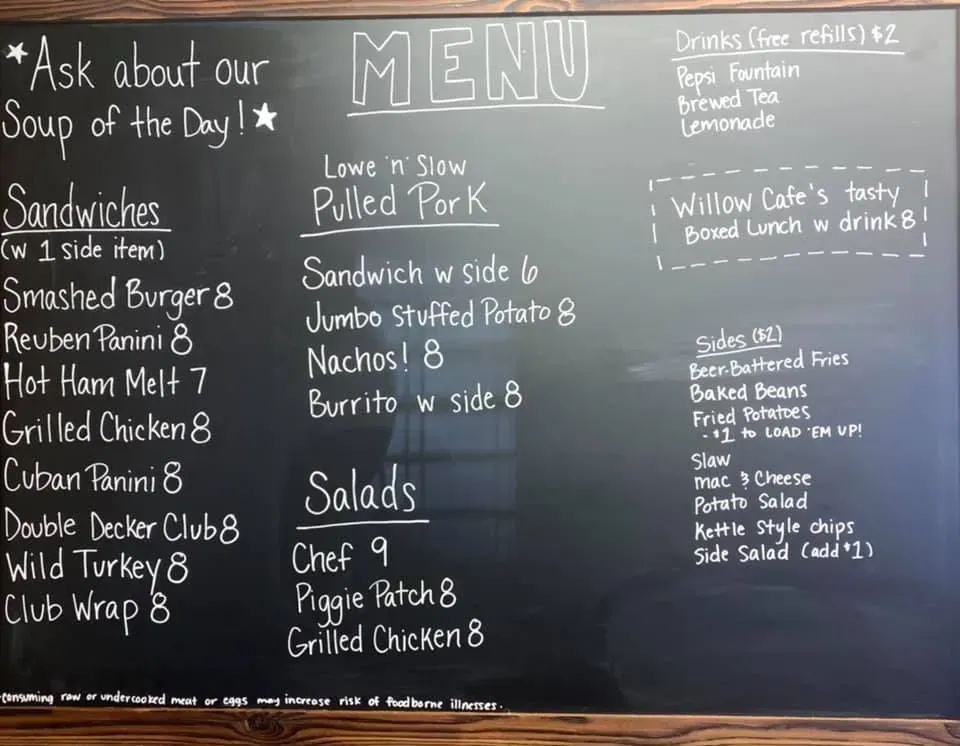 *Ask about our
Soup of the Day!★
MENU
Sandwiches
(w 1 side item)
Smashed Burger 8
Reuben Panini 8
Hot Ham Melt 7
Grilled Chicken 8
Cuban Panini 8
Double Decker Club 8
Wild Turkey 8
Club Wrap 8
Lowe 'n' Slow
Pulled Pork
Sandwich w side 6
Jumbo Stuffed Potato 8
Nachos! 8
Burrito w side 8
Salads
Chef 9
Piggie Patch 8
Grilled Chicken 8
Drinks (free refills) $2
Pepsi Fountain
Brewed Tea
Lemonade
Willow Cafe's tasty
Boxed Lunch w drink 8
Sides ($2)
Beer-Battered Fries
Baked Beans
Fried Potatoes
- $1 to LOAD 'EM UP!
Slaw
mac & Cheese
Potato Salad
Kettle Style chips
Side Salad (add $1)
consuming raw or undercooked meat or eggs may increase risk of foodborne illnesses.